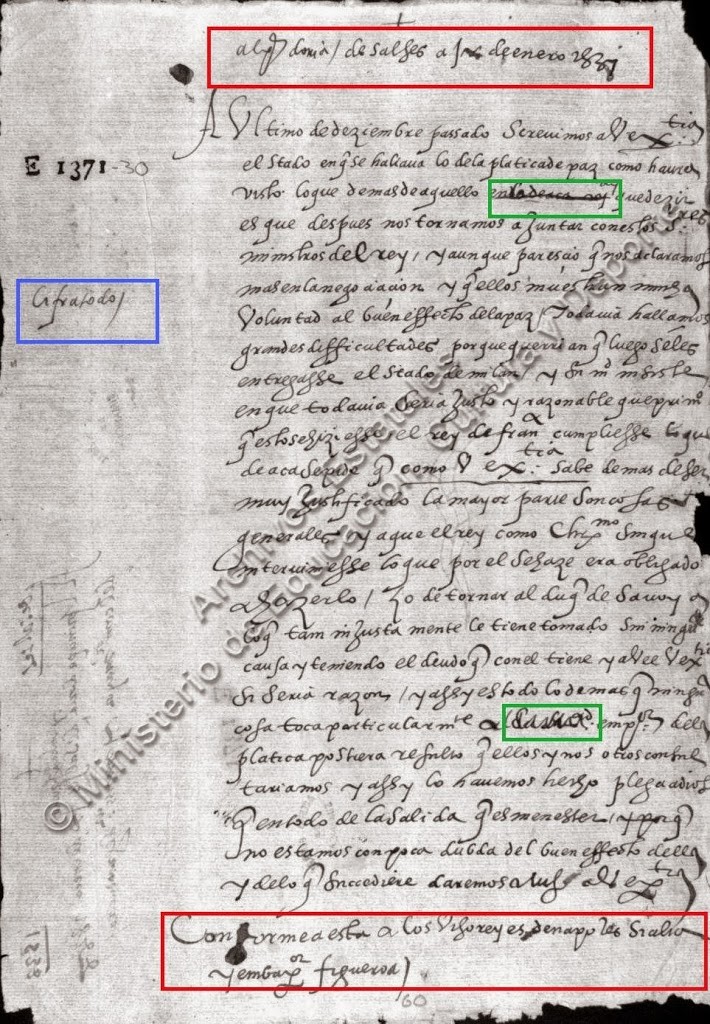 al p^e doria / de salses a de enero 1538
A Ultimo de deziembre passado Screvimos a V ex^tia
el Stado en q̃ se hallava lo de la platica de paz como havra
E 1371-30
visto lo que demas de aquello que dezir
es que despues nos tornamos a Juntar con estos S^res
ministros del rey / y aunque parescio q̃ nos declaramos
mas en la negociacion y q̃ ellos
Cifra todo /
Voluntad al buen effecto de la paz / Todavia hallamos
grandes difficultades porque querrian q̃ luego se les
entregasse el Stado de milan y Su m^t insiste
en que todavia Seria Justo y razonable que prim^o
q̃ esto se hiziesse el rey de fran^a cumpliesse lo que
de aca Se pide q̃ como V ex^tia Sabe demas de ser
muy Justificado la mayor parte Son cosas
generales y a que el rey como Chr^mo Sin que
interviniesse lo que por el Se haze era obligado
a hazerlo / Lo de tornar al duq̃ de Savoya
lo q̃ tam injustamente le tiene tomado Sin ningu^a
causa y teniendo el deudo q̃ con el tiene ya vee V ex^tia
Si Seria razon / y assy es todo lo demas q̃ ningu^a
cosa toca particularm^te a emp^or de la
platica postrera resulto q̃ ellos y nosotros consul
tariamos y assy lo havemos hecho plega a dios
q̃ en todo de la Salida q̃ es menester / y porq̃
no estamos con poca dubda del buen effecto della
y de lo q̃ Succediere daremos aviso a V ex^tia
Conforme a esta a los Visoreyes de napoles Sicilia
y embax^or figueroa /
60
© Ministerio de Educación, Cultura y Deporte
Archivos Estatales
1538